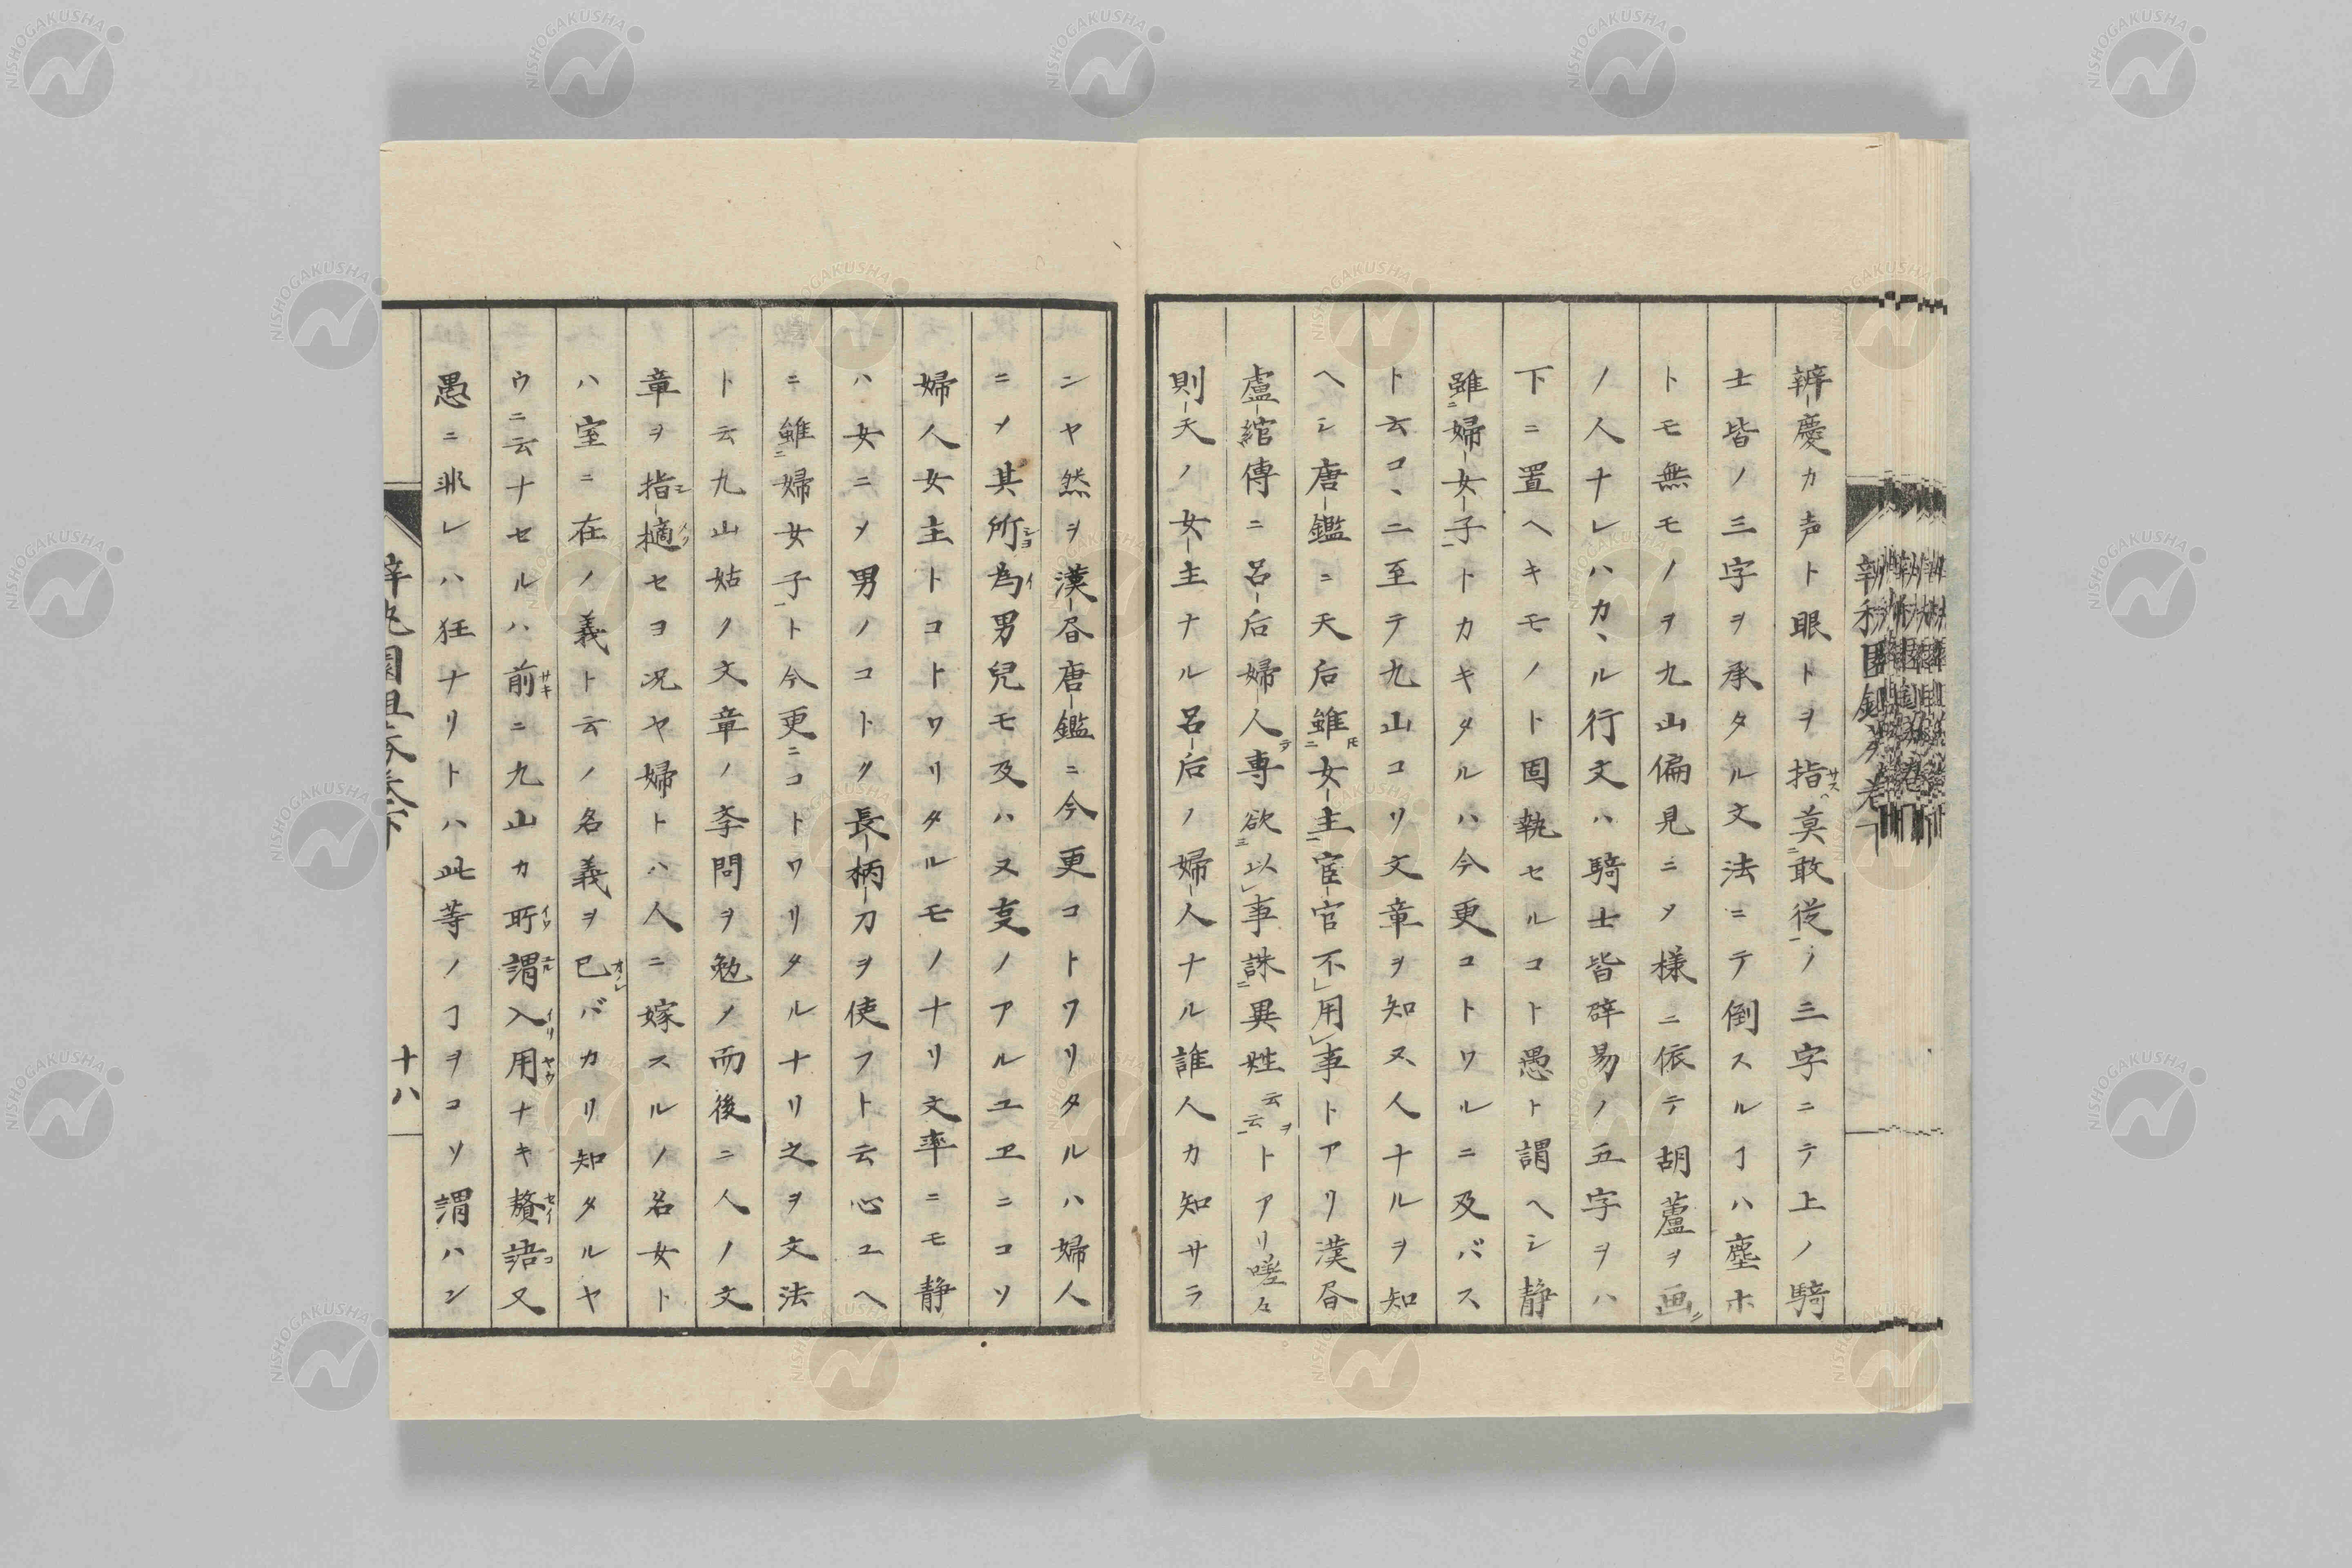 辨慶カ声ト眼トヲ指莫敢従ノ三字ニテ上ノ騎
士皆ノ三字ヲ承タル文法ニテ倒スルヿハ塵ホ
トモ無モノヲ九山偏見ニメ様ニ依テ胡蘆ヲ画
ノ人ナレハカヽル行文ハ騎士皆辟易ノ五字ヲハ
下ニ置ヘキモノト固執セルコト愚ト謂ヘシ静
雖婦女子トカキタルハ今更コトワルニ及バス
ト云コヽニ至テ九山コリ文章ヲ知ヌ人ナルヲ知
ヘシ唐鑑ニ天后雖女主宦官不用事トアリ漢昏
盧綰傳ニ呂后婦人專欲以事誅異姓云云トアリ嗟々
則天ノ女主ナル呂后ノ婦人ナル誰人カ知サラ
ンヤ然ヲ漢昏唐鑑ニ今更コトワリタルハ婦人
ニメ其所為男兒モ及ハヌ支ノアルユヱニコソ
婦人女主トコトワリタルモノナリ文率ニモ静
ハ女ニメ男ノコトク長柄刀ヲ使フト云心ユヘ
ニ雖婦女子ト今更ニコトワリタルナリ之ヲ文法
ト云九山姑ノ文章ノ斈問ヲ勉メ而後ニ人ノ文
章ヲ指擿セヨ况ヤ婦トハ人ニ嫁スルノ名女ト
ハ室ニ在ノ義ト云ノ名義ヲ已バカリ知タルヤ
ウニ云ナセルハ前ニ九山カ所謂入用ナキ贅語又
愚ニ非レハ狂ナリトハ此等ノヿヲコソ謂ハン
十八
NISHOGAKUSHA